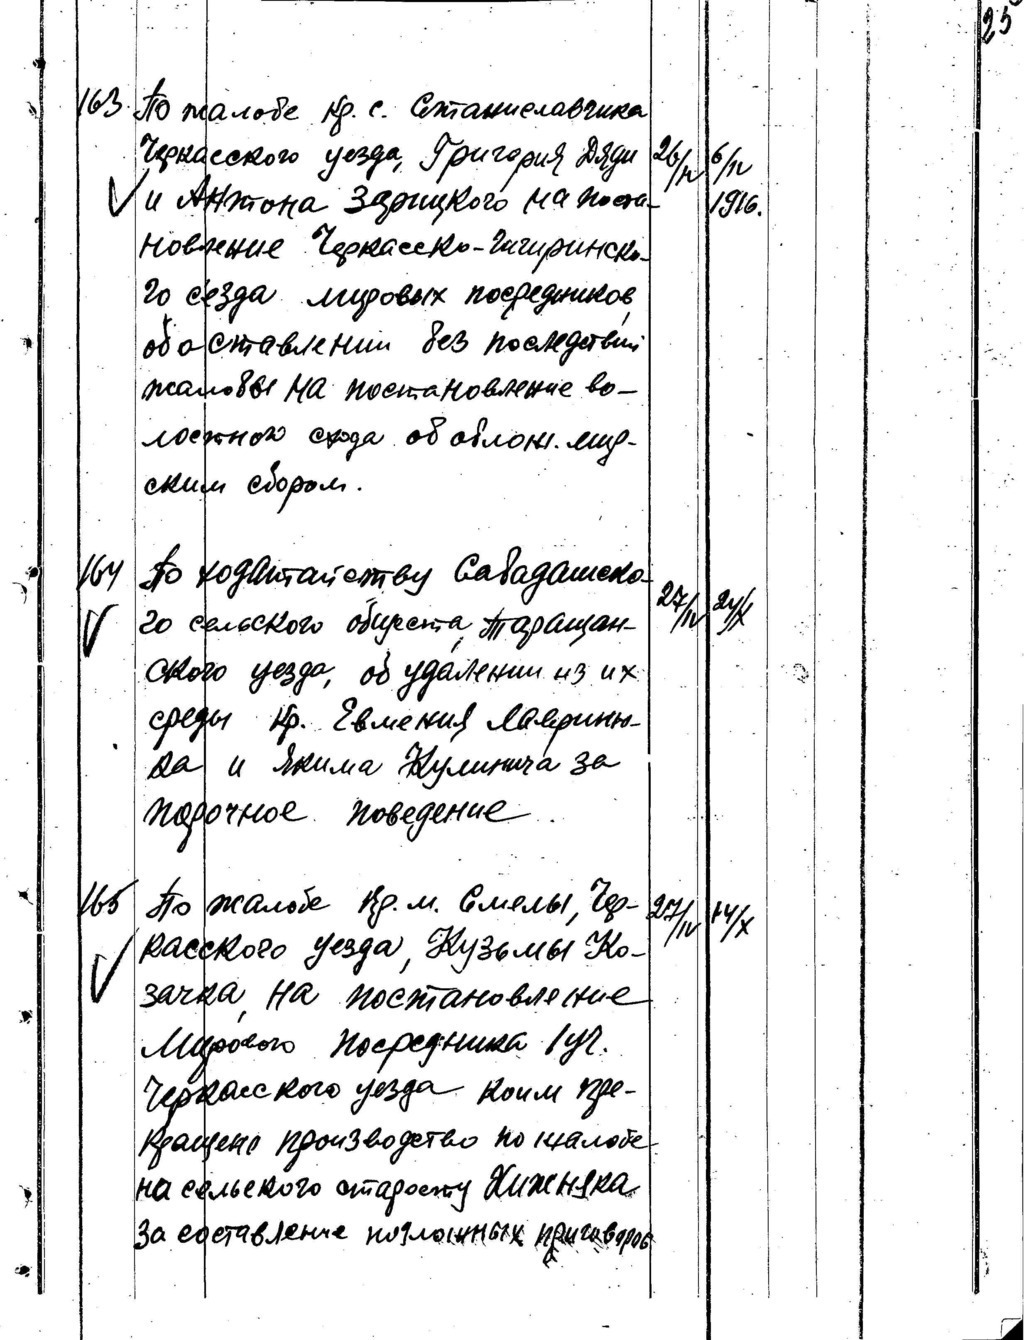 25
163. По жалобе кр. с. Станиславчика
Черкасского уезда, Григория Дяди 26/IV 6/IV
и Антона Зарицкого на поста- 1916.
новление Черкасско-Чигиринско-
го сезда мировых посредников,
об оставлении без последствий
жалобы на постановление во-
лостного схода об облож. мир-
ским сбором.
164 По ходатайству Сабадашско-
го сельского общества, Таращан- 27/IV 24/X
ского уезда, об удалении из их
среды кр. Евмения Лавриню-
ка и Якима Кулинича за
порочное поведение.
165 По жалобе кр. м. Смелы, Чер- 27/IV 14/X
касского уезда, Кузьмы Ко-
зачка, на постановление
Мирового посредника 1 уч.
Черкасского уезда коим пре-
кращено производство по жалобе
на сельского старосту Хижняка
за составление подложных приговоров